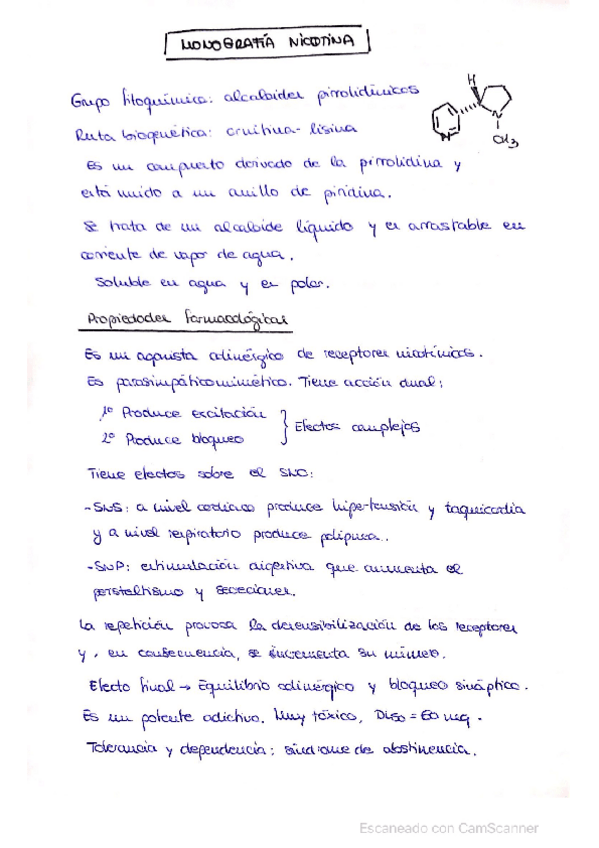 MONOGRAFÍA NICOTINA
Grupo fitoquímico: alcaloides pirrolidínicos
H
N
N
CH3
Ruta biogenética: ornitina-lisina
Es un compuesto derivado de la pirrolidina y
está unido a un anillo de piridina.
Se trata de un alcaloide líquido y es arrastable en
corriente de vapor de agua.
Soluble en agua y es polar.
Propiedades farmacológicas
Es un agonista colinérgico de receptores nicotínicos.
Es parasimpáticomimético. Tiene acción dual:
1º Produce excitación
2º Produce bloqueo
Efectos complejos
Tiene efectos sobre el SNC:
-SNS: a nivel cardiaco produce hipertensión y taquicardia
y a nivel respiratorio produce polipnea.
-SNP: estimulación digestiva que aumenta el
peristaltismo y secreciones.
La repetición provoca la desensibilización de los receptores
y, en consecuencia, se incrementa su número.
Efecto final → Equilibrio colinérgico y bloqueo sináptico.
Es un potente adictivo. Muy tóxico, DL50 = 60 mg.
Tolerancia y dependencia: síndrome de abstinencia.
Escaneado con CamScanner